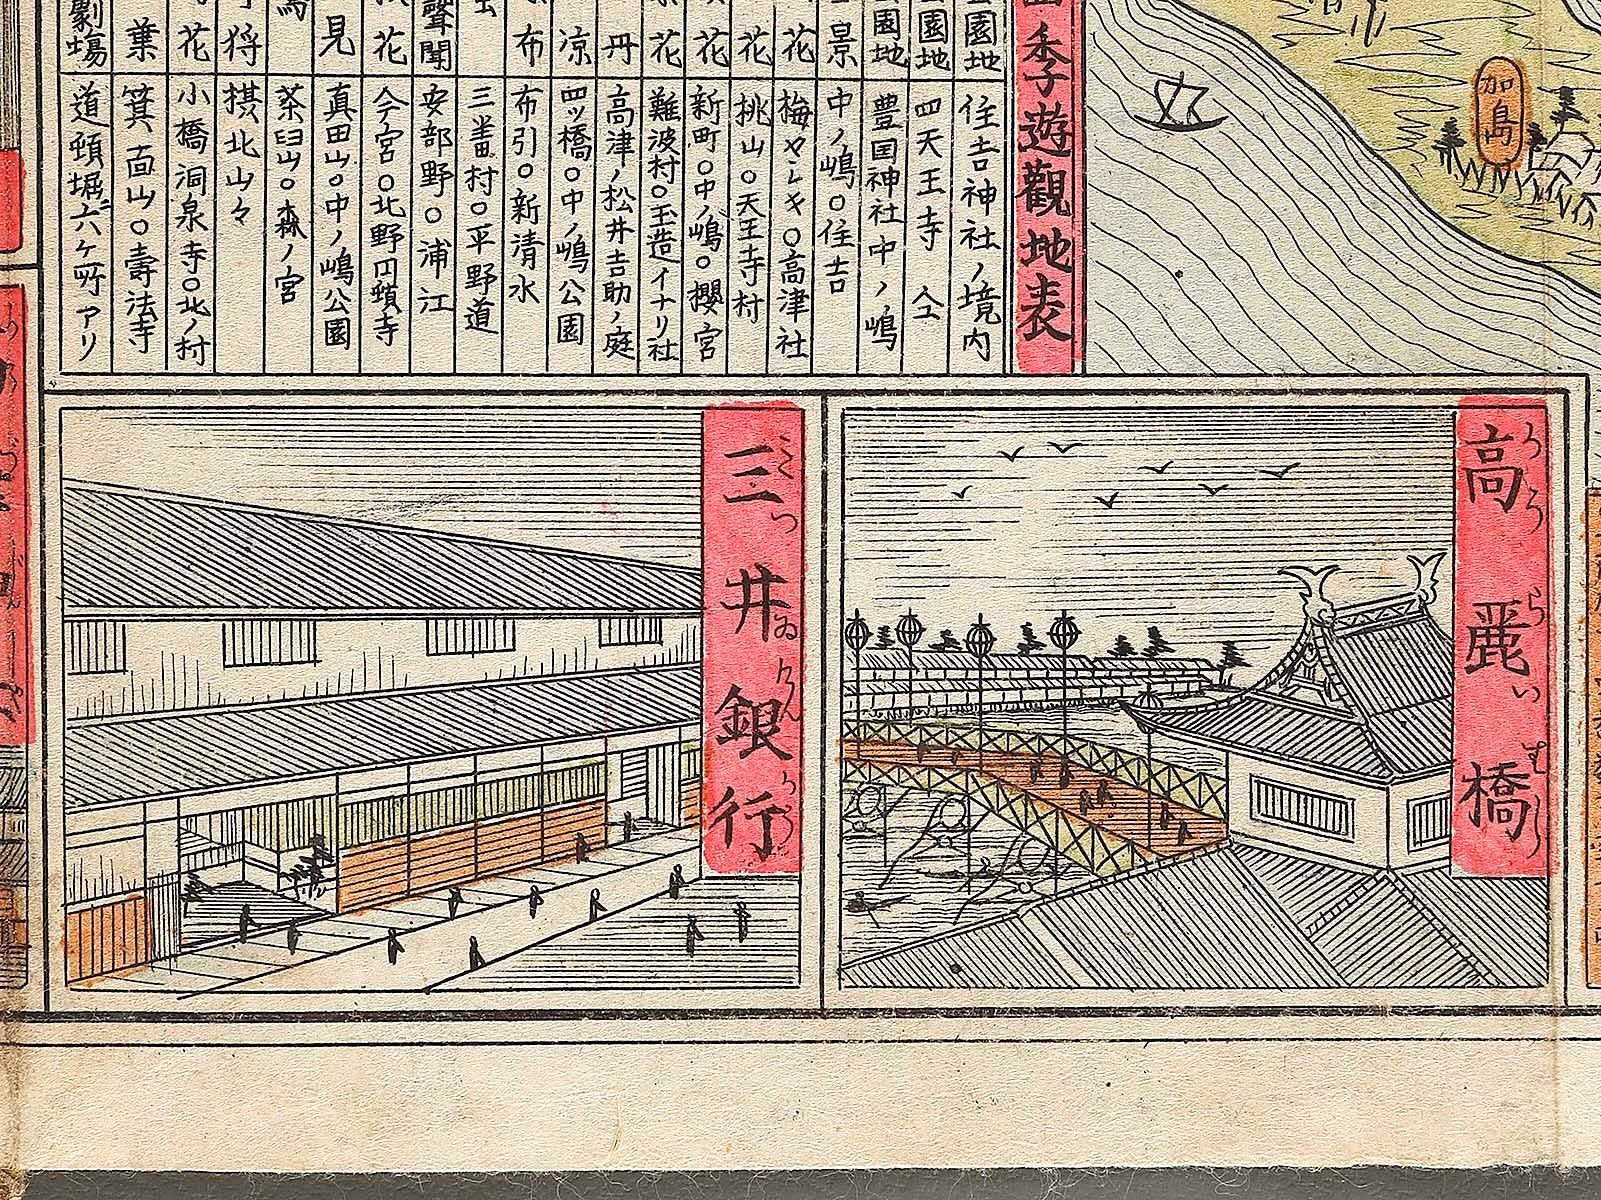 加島
季遊觀地表
園地 住吉神社ノ境内
園地 四天王寺 仝
園地 豊国神社中ノ嶋
景 中ノ嶋○住吉
花 梅ヤシキ○高津社
花 桃山○天王寺村
花 新町○中ノ嶋○櫻宮
花 難波村○玉造イナリ社
丹 高津ノ松井吉助ノ庭
凉 四ツ橋○中ノ嶋公園
布 布引○新清水
三番村○平野道
聲聞 安部野○浦江
花 今宮○北野円頓寺
見 真田山○中ノ嶋公園
茶臼山○森ノ宮
狩 摂北山々
花 小橋洞泉寺○北ノ村
葉 箕面山○壽法寺
劇塲 道頓堀ニ六ケ所アリ
高麗橋
三井銀行